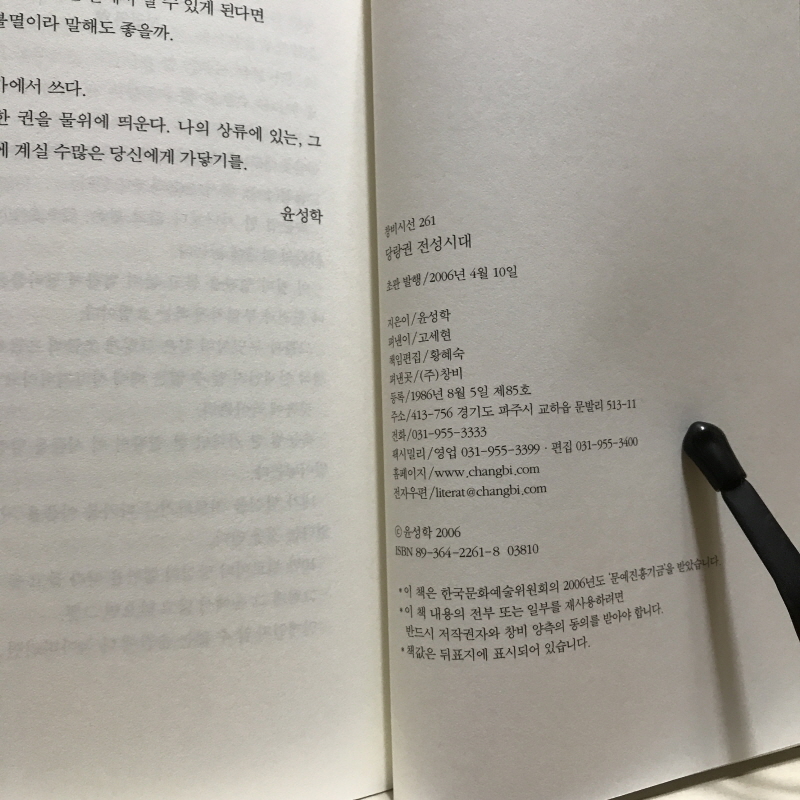 수 있게 된다면
불멸이라 말해도 좋을까.
가에서 쓰다.
한 권을 물위에 띄운다. 나의 상류에 있는, 그
에 계실 수많은 당신에게 가닿기를.
윤성학
창비시선 261
당랑권 전성시대
초판 발행/2006년 4월 10일
지은이/윤성학
펴낸이/고세현
책임편집/황혜숙
펴낸곳/(주)창비
등록/1986년 8월 5일 제85호
주소/413-756 경기도 파주시 교하읍 문발리 513-11
전화/031-955-3333
팩시밀리/영업 031-955-3399 · 편집 031-955-3400
홈페이지/www.changbi.com
전자우편/literat@changbi.com
ⓒ윤성학 2006
ISBN 89-364-2261-8 03810
*이 책은 한국문화예술위원회의 2006년도 '문예진흥기금'을 받았습니다.
*이 책 내용의 전부 또는 일부를 재사용하려면
반드시 저작권자와 창비 양측의 동의를 받아야 합니다.
*책값은 뒤표지에 표시되어 있습니다.